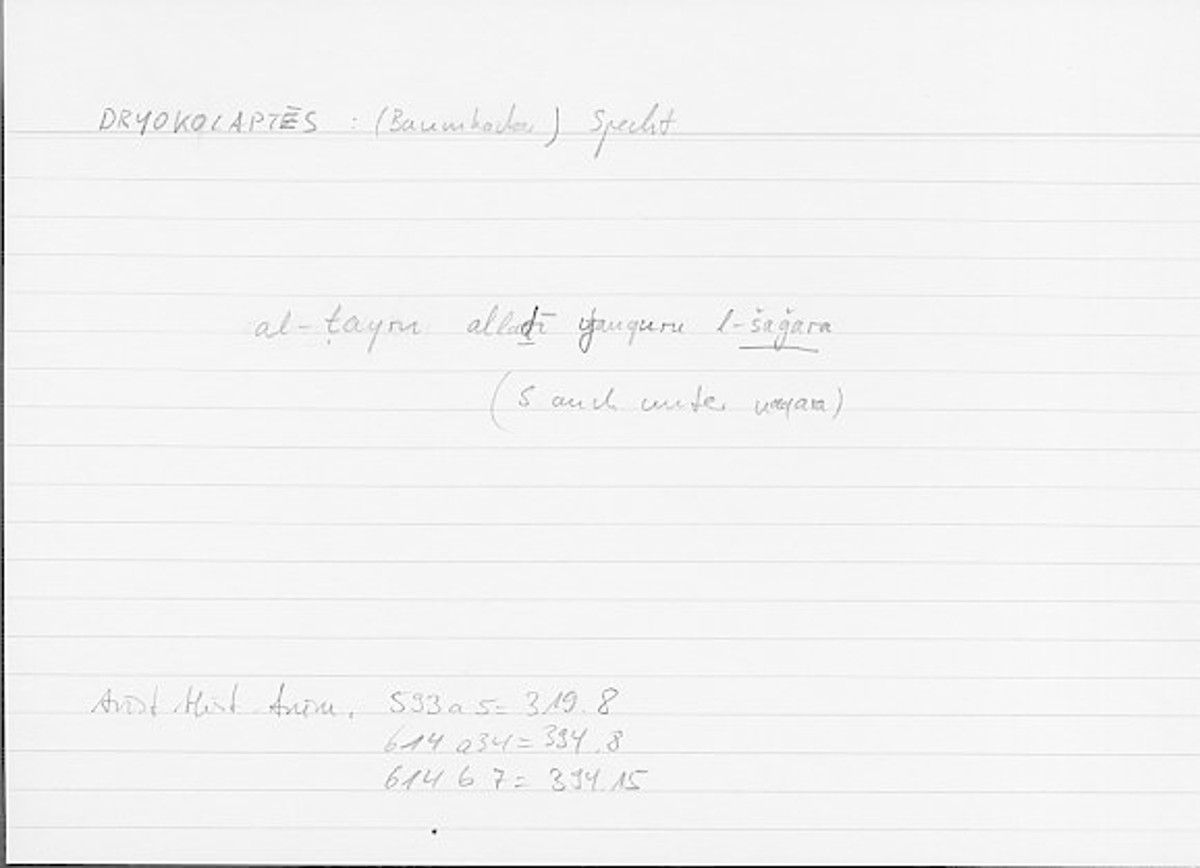 DRYOKOLAPTĒS : (Baumhacker) Specht
al-ṭayru allaḏī yanquru l-šaǧara
(s auch unter naqara)
Arist Hist Anim. 593 a 5 = 319.8
614 a34 = 394.8
614 b 7 = 394.15